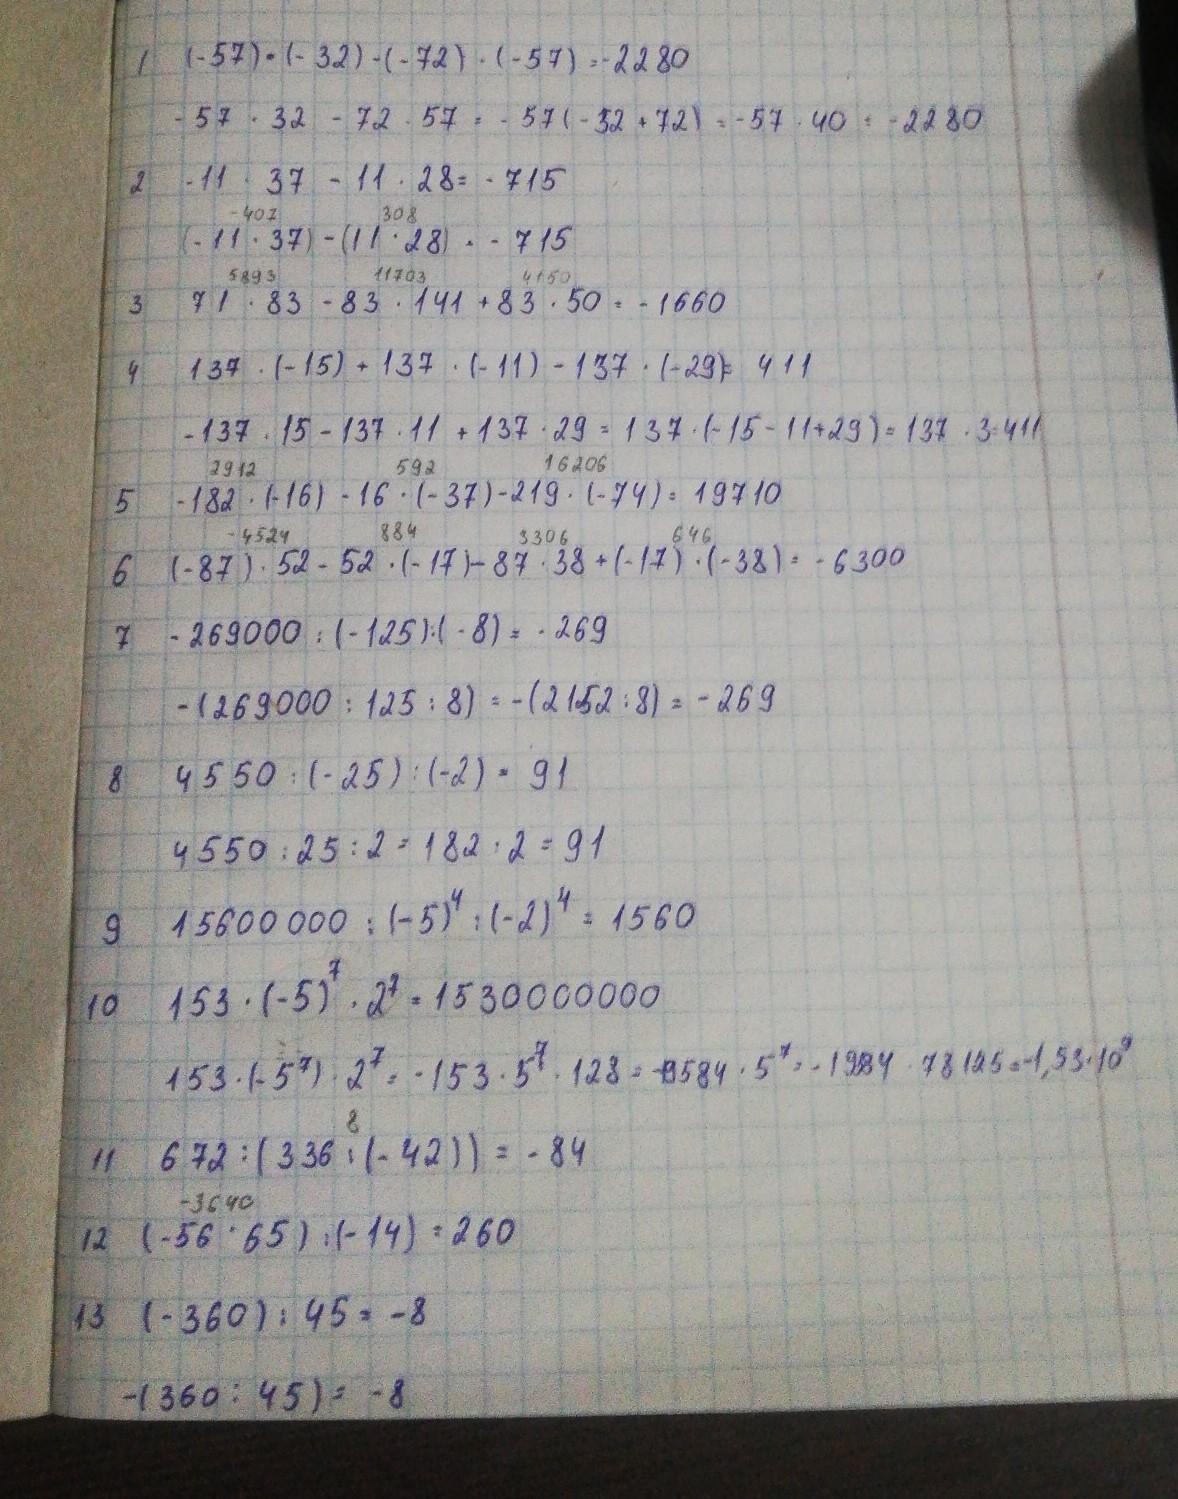 1 (-57)·(-32)-(-72)·(-57)=-2280
-57·32-72·57=-57(-32+72)=-57·40=-2280
2 -11·37-11·28=-715
-407 308
(-11·37)-(11·28)=-715
5893 11703 4150
3 71·83-83·141+83·50=-1660
4 137·(-15)+137·(-11)-137·(-29)=411
-137·15-137·11+137·29=137·(-15-11+29)=137·3=411
2912 592 16206
5 -182·(-16)-16·(-37)-219·(-74)=19710
-4524 884 3306 646
6 (-87)·52-52·(-17)-87·38+(-17)·(-38)=-6300
7 -269000:(-125):(-8)=-269
-(269000:125:8)=-(2152:8)=-269
8 4550:(-25):(-2)=91
4550:25:2=182:2=91
9 15600000:(-5)⁴:(-2)⁴=1560
10 153·(-5)⁷·2⁷=1530000000
153·(-5⁷)·2⁷=-153·5⁷·128=-19584·5⁷=-19584·78125=-1,53·10⁹
8
11 672:(336:(-42))=-84
-3640
12 (-56·65):(-14)=260
13 (-360):45=-8
-(360:45)=-8